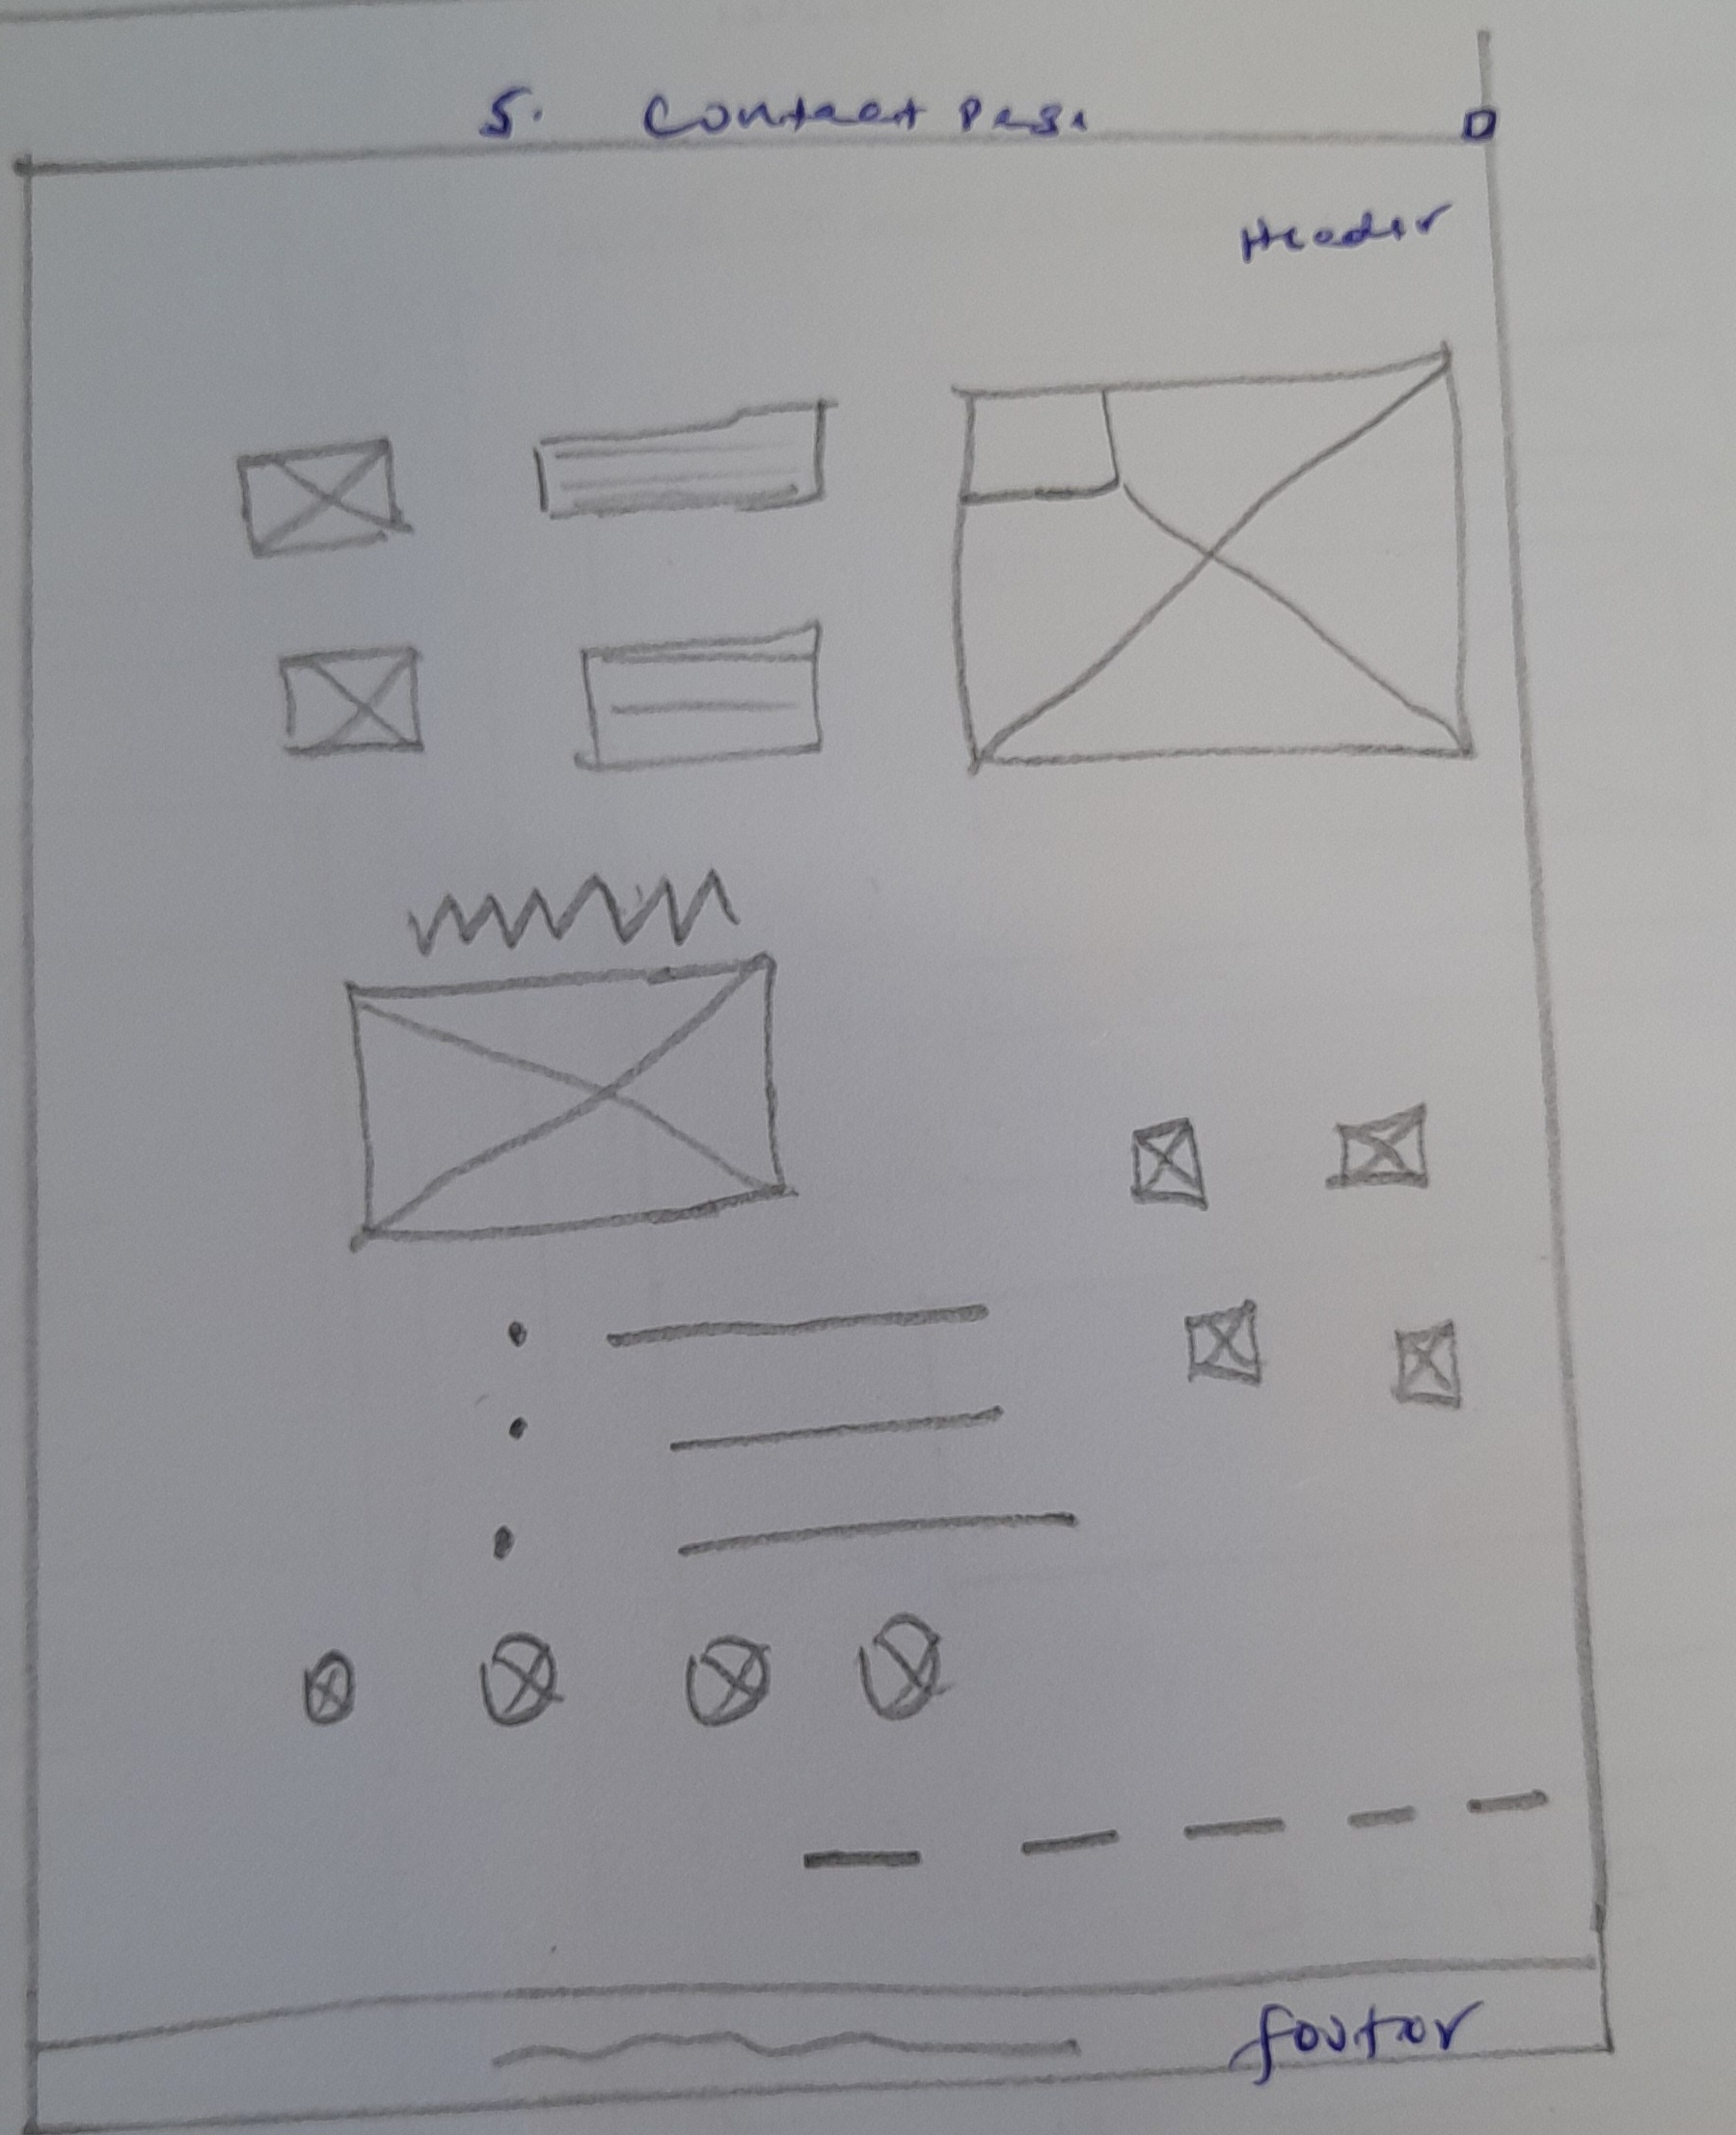 5. Contact Page
Header
footer